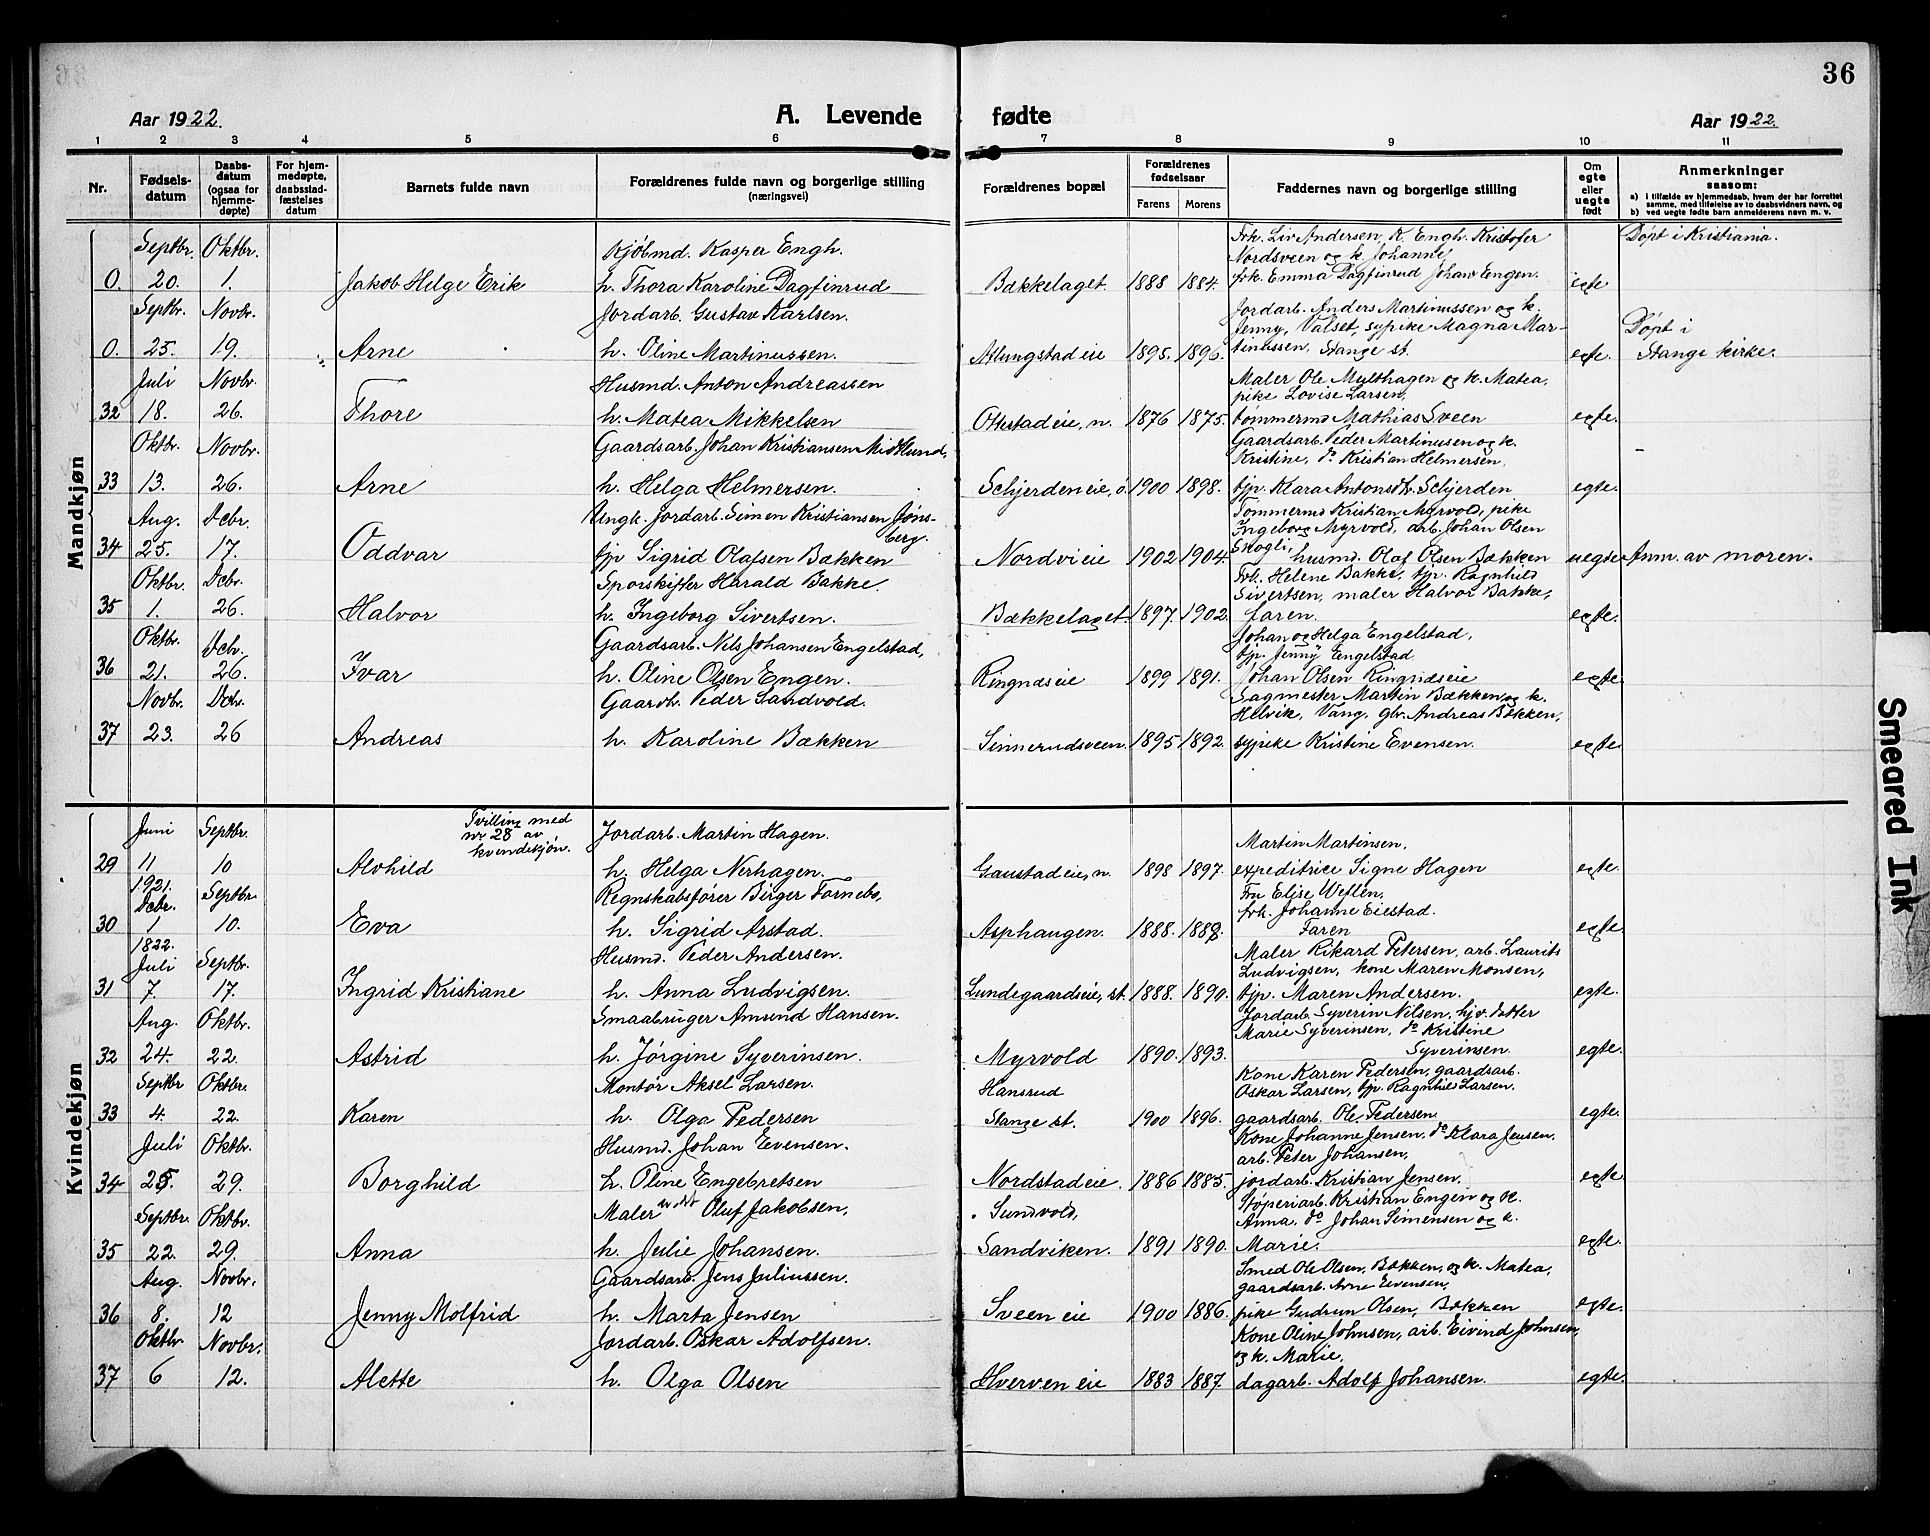 36
Aar 1922.
A. Levende fødte
Aar 1922.
1 2 3 4 5 6 7 8 9 10 11
Nr.
Fødsels-
datum
Daabs-
datum
(ogsaa for
hjemme-
døpte)
For hjem-
medøpte,
daabsstad-
fæstelses
datum
Barnets fulde navn
Forældrenes fulde navn og borgerlige stilling
(næringsvei)
Forældrenes bopæl
Forældrenes
fødselsaar
Farens Morens
Faddernes navn og borgerlige stilling
Om
egte
eller
uegte
født
Anmerkninger
saasom:
a) i tilfælde av hjemmedaab, hvem der har forrettet
samme, med tilføielse av to daabsvidners navn, og
b) ved uegte fødte barn anmelderens navn m. v.
Mandkjøn
Septbr. Oktbr. Kjøbmd. Kasper Engh. Frk. Liv Andersen, K. Engh. Kristofer Døpt i Kristiania.
Nordsveen og k. Johanne,
0. 20. 1. Jakob Helge Erik h. Thora Karoline Dagfinrud Bækkelaget. 1888 1884. frk. Emma Dagfinrud Johans Engen. egte
Septbr. Novbr. Jordarb. Gustav Karlsen. Jordarb. Anders Martinussen og k.
Jenny, Valset, sypike Magna Mar- Døpt i
0. 25. 19. Arne h. Oline Martinussen. Atlungstadeie 1895. 1896. tinussen, Stange st. egte. Stange kirke.
Juli Novbr. Husmd. Anton Andreassen Maler Ole Mylthagen og k. Matea,
pike Lovise Larsen,
32 18. 26. Thore h. Matea Mikkelsen Ottestadeie, n. 1876 1875. tømmermd Mathias Sveen egte.
Oktbr. Novbr. Gaardsarb. Johan Kristiansen Midtlund, Gaardsarb. Peder Martinusen og k.
Kristine, do Kristian Helmersen,
33 13. 26. Arne h. Helga Helmersen. Schjerdeneie, ø. 1900 1898. tjp. Klara Antonsdtr. Schjerden egte.
Aug. Dcbr. Ungk. Jordarb. Simen Kristiansen Jøns- Tømmermd Kristian Myrvold, pike
berg. Ingeborg Myrvold, arb. Johan Olsen
34 25. 17. Oddvar tjp Sigrid Olafsen Bækken Nordvieie 1902 1904. Skogli, husmd. Olaf Olsen Bækken uegte Anm. av moren.
Oktbr. Dcbr. Sporskifter Harald Bakke. Frk. Helene Bakke, tjp. Ragnhild
Sivertsen, maler Halvor Bakke,
35 1. 26. Halvor h. Ingeborg Sivertsen. Bækkelaget. 1897. 1902. faren. egte.
Oktbr. Dcbr. Gaardsarb. Nils Johansen Engelstad, Johan og Helga Engelstad,
tjp. Jenny Engelstad
36 21. 26. Ivar h. Oline Olsen Engen. Ringnæseie 1899 1891. Johan Olsen Ringnæseie egte.
Novbr. Dcbr. Gaardbr. Peder Sandvold. Sagmester Martin Bækken og k.
Helvik, Vang. gbr. Andreas Bækken,
37 23. 26 Andreas h. Karoline Bækken Sinnerudsveen. 1895 1892. sypike Kristine Evensen. egte
Kvindekjøn
Juni Septbr. Tvilling med
nr 28 av
kvindekjøn. Jordarb. Martin Hagen. Martin Martinsen,
29 11 10 Alvhild h. Helga Nerhagen. Gaustadeie, n. 1898 1897. expeditrice Signe Hagen egte.
1921.
Dcbr. Septbr. Regnskabsfører Birger Fornebo, Fru Elise Weflen,
frk. Johanne Eiestad.
30 1 10. Eva h. Sigrid Arstad. Asphaugen. 1888. Faren egte
1822.
Juli Septbr. Husmd. Peder Andersen. Maler Rikard Petersen, arb. Laurits
Ludvigsen, kone Maren Monsen,
31 7. 17. Ingrid Kristiane h. Anna Ludvigsen. Lundegaardseie, st. 1888. 1890. tjp. Maren Andersen. egte.
Aug. Oktbr. Smaabruger Amund Hansen. Jordarb. Syverin Nilsen, hjv. datter
Marie Syverinsen, do Kristine
32 24. 22. Astrid h. Jørgine Syverinsen. Myrvold 1890. 1893. Syverinsen. egte.
Septbr Oktbr. Montør Aksel Larsen. Hansrud Kone Karen Pedersen, gaardsarb.
Oskar Larsen, tjp. Ragnhild Larsen,
33 4. 22. Karen h. Olga Pedersen Stange st. 1900 1896. gaardsarb. Ole Pedersen. egte.
Juli Oktbr. Husmd. Johan Evensen. Kone Johanne Jensen, do Klara Jensen,
arb. Peter Johansen,
34 25. 29. Borghild h. Oline Engebretsen Nordstadeie. 1886 1885. jordarb. Kristian Jensen. egte
Septbr. Oktbr. Maler Oluf Jakobsen, Sundvold, Støperiarb. Kristian Engen og k.
Anna, do Johan Simensen og k.
35 22. 29. Anna h. Julie Johansen. Sandviken. 1891 1890. Marie. egte.
Aug. Novbr. Gaardsarb. Jens Juliussen. Smed Ole Olsen, Bækken, og k. Matea,
gaardsarb. Arne Evensen,
36 8. 12 Jenny Molfrid h. Marta Jensen Sveen eie 1900 1886. pike Gudrun Olsen, Bækken egte.
Oktbr Novbr. Jordarb. Oskar Adolfsen. Kone Oline Johnsen, arb. Eivind Johnsen
og k. Marie,
37 6 12. Alette h. Olga Olsen Hverven eie 1883 1887. dagarb. Adolf Johansen. egte.
Smeared Ink